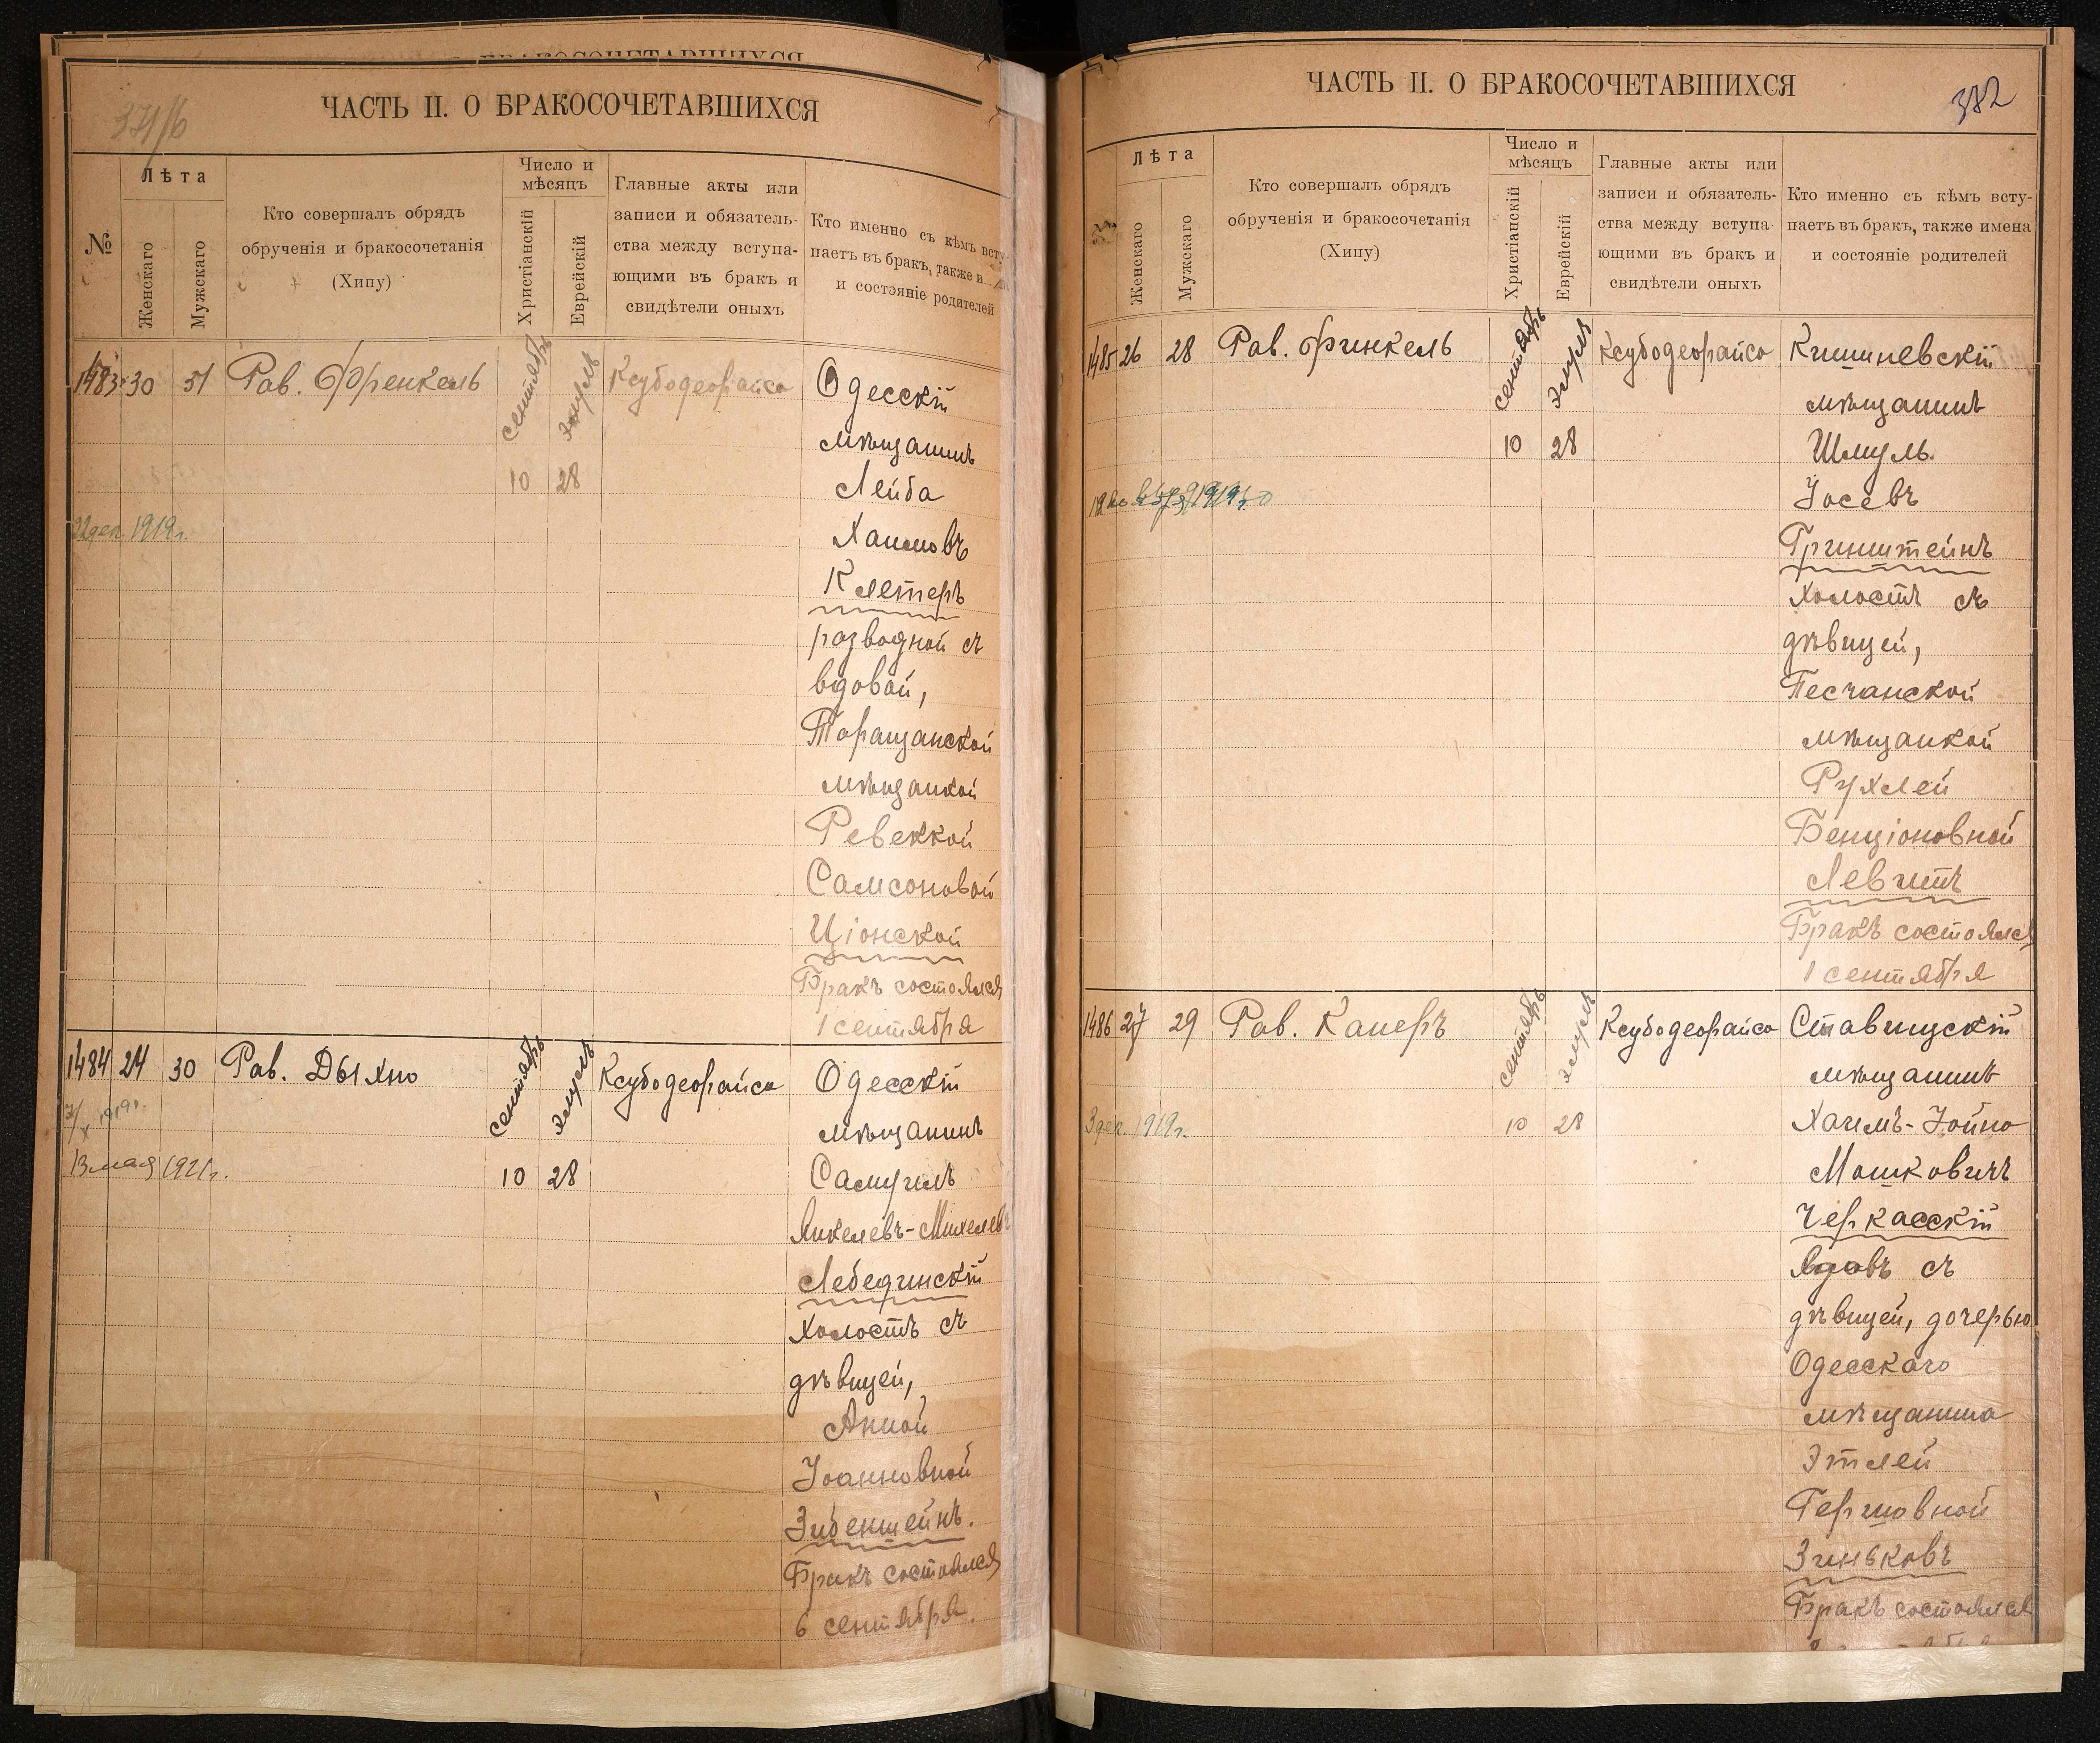 ЧАСТЬ II. О БРАКОСОЧЕТАВШИХСЯ
№
Лѣта
Женскаго
Мужскаго
Кто совершалъ обрядъ
обрученія и бракосочетанія
(Хипу)
Число и
мѣсяцъ
Христіанскій
Еврейскій
Главные акты или
записи и обязатель-
ства между вступа-
ющими въ бракъ и
свидѣтели оныхъ
Кто именно съ кѣмъ всту
паетъ въ бракъ, также и
и состояніе родителей
1483 30 51 Рав. Френкель сентябрь элуль Ксубодеорайсо Одесскій
мѣщанинъ
10 28 Лейба
22 дек. 1919 г. Хаимовъ
Клетеръ
разводной съ
вдовой,
Таращанской
мѣщанкой
Ревеккой
Самсоновой
Ціонской
Бракъ состоялся
1 сентября
1484 24 30 Рав. Дыхно сентябрь элуль Ксубодеорайсо Одесскій
X 1919 г. мѣщанинъ
13 мая 1921 г. 10 28 Самуилъ
Янкелевъ-Михелев
Лебединскій
холостъ съ
дѣвицей,
Анной
Іоанновной
Зибенштейнъ.
Бракъ состоялся
6 сентября.
ЧАСТЬ II. О БРАКОСОЧЕТАВШИХСЯ
372
Лѣта
Женскаго
Мужскаго
Кто совершалъ обрядъ
обрученія и бракосочетанія
(Хипу)
Число и
мѣсяцъ
Христіанскій
Еврейскій
Главные акты или
записи и обязатель-
ства между вступа-
ющими въ бракъ и
свидѣтели оныхъ
Кто именно съ кѣмъ всту-
паетъ въ бракъ, также имена
и состояніе родителей
1485 26 28 Рав. Финкель сентябрь элуль Ксубодеорайсо Кишиневскій
мѣщанинъ
10 28 Шмуль
Іосевъ
Гринштейнъ
холостъ съ
дѣвицей,
Песчанской
мѣщанкой
Рухлей
Бенціоновной
Левитъ
Бракъ состоялся
1 сентября
1486 27 29 Рав. Канеръ сентябрь элуль Ксубодеорайсо Ставищскій
мѣщанинъ
3 дек. 1919 г. 10 28 Хаимъ-Іойно
Мошковичъ
Черкасскій
вдовъ съ
дѣвицей, дочерью
Одесскаго
мѣщанина
Этлей
Гершовной
Зиньковъ
Бракъ состоялся